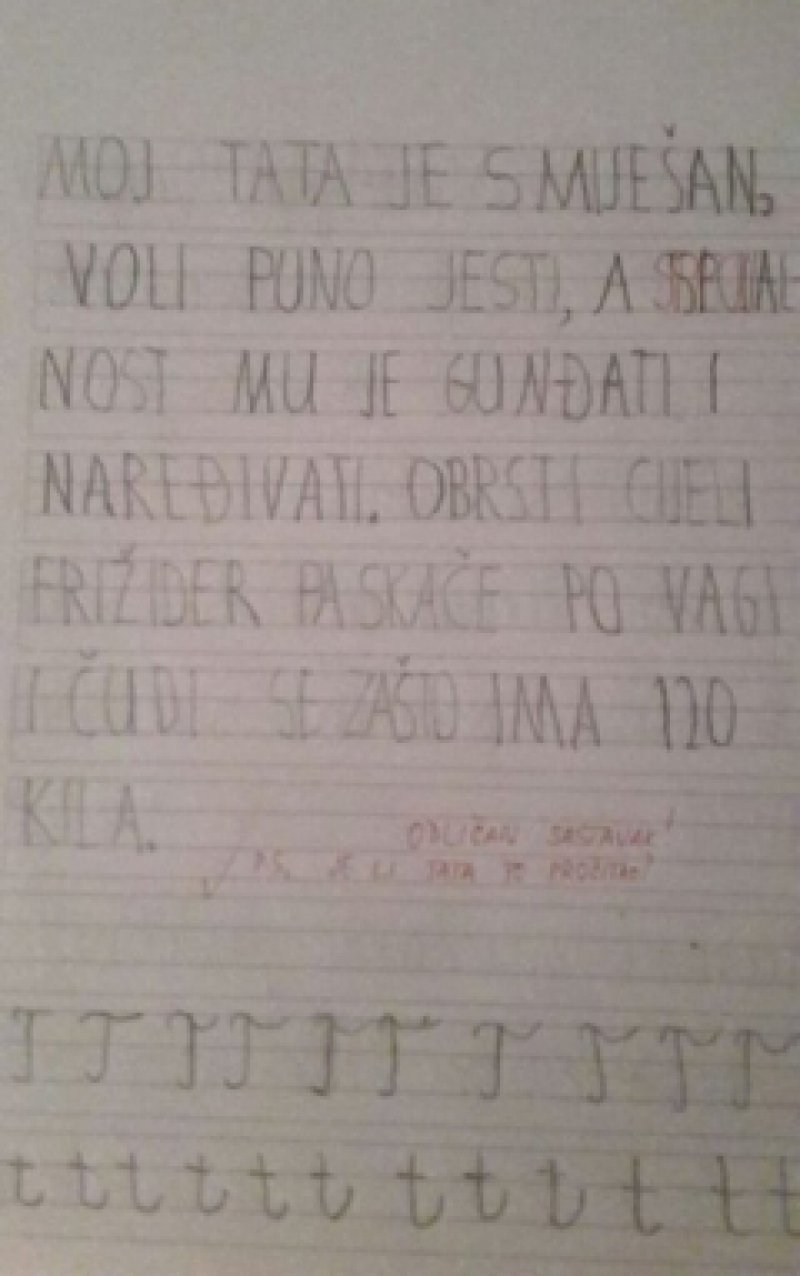 MOJ TATA JE SMIJEŠAN,
VOLI PUNO JESTI, A SPECIJAL
NOST MU JE GUNĐATI I
NAREĐIVATI. OBRSTI CIJELI
FRIŽIDER PA SKAČE PO VAGI
I ČUDI SE ZAŠTO IMA 120
KILA.
ODLIČAN SASTAVAK!
P.S. JE LI TATA TO PROČITAO?
T T T T T T T T T T
t t t t t t t t t t t t